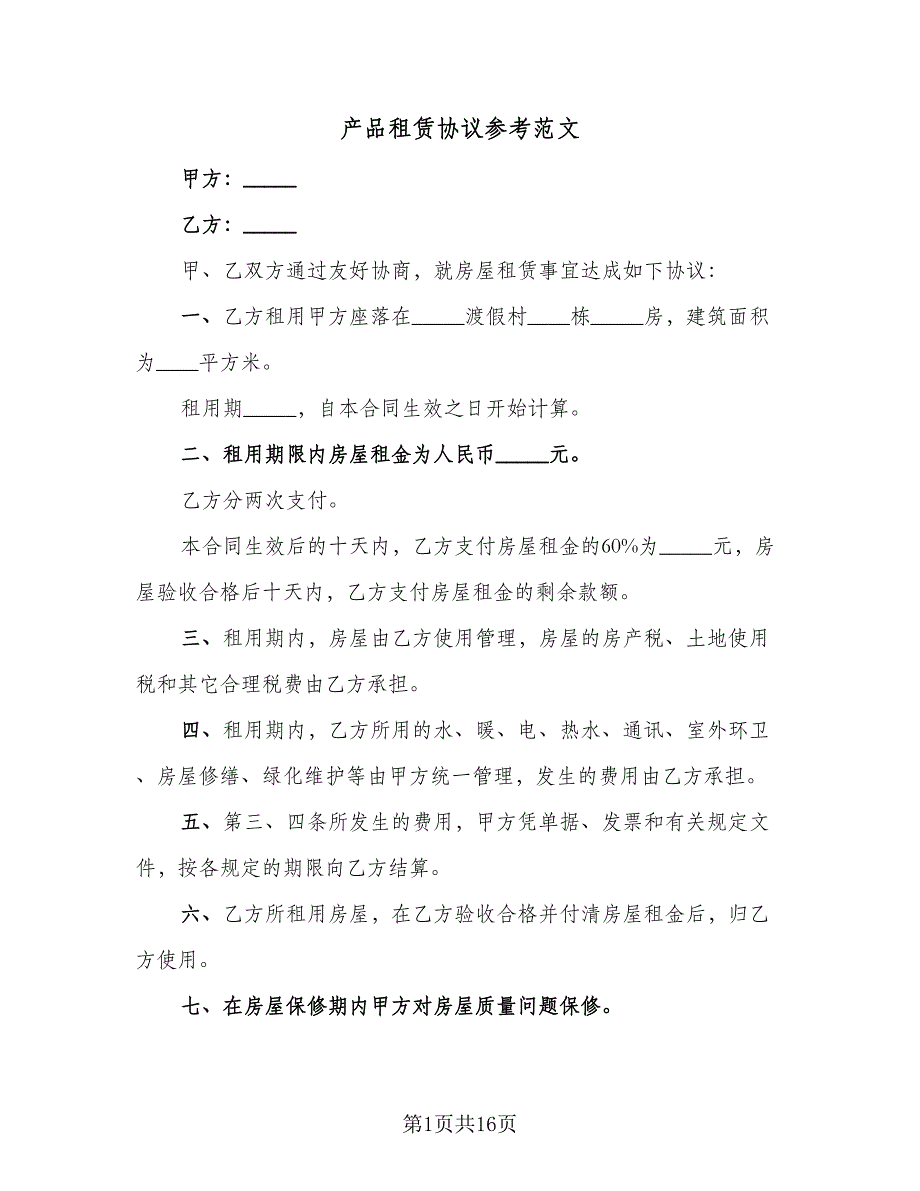 产品租赁协议参考范文
甲方：_____
乙方：_____
甲、乙双方通过友好协商，就房屋租赁事宜达成如下协议：
一、乙方租用甲方座落在_____渡假村____栋_____房，建筑面积
为____平方米。
租用期_____，自本合同生效之日开始计算。
二、租用期限内房屋租金为人民币_____元。
乙方分两次支付。
本合同生效后的十天内，乙方支付房屋租金的60%为_____元，房
屋验收合格后十天内，乙方支付房屋租金的剩余款额。
三、租用期内，房屋由乙方使用管理，房屋的房产税、土地使用
税和其它合理税费由乙方承担。
四、租用期内，乙方所用的水、暖、电、热水、通讯、室外环卫
、房屋修缮、绿化维护等由甲方统一管理，发生的费用由乙方承担。
五、第三、四条所发生的费用，甲方凭单据、发票和有关规定文
件，按各规定的期限向乙方结算。
六、乙方所租用房屋，在乙方验收合格并付清房屋租金后，归乙
方使用。
七、在房屋保修期内甲方对房屋质量问题保修。
第1页共16页